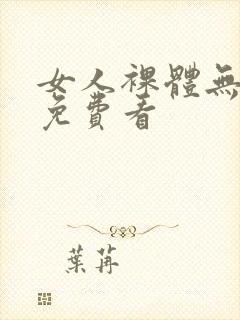 女人裸體無
免費看
葉苒